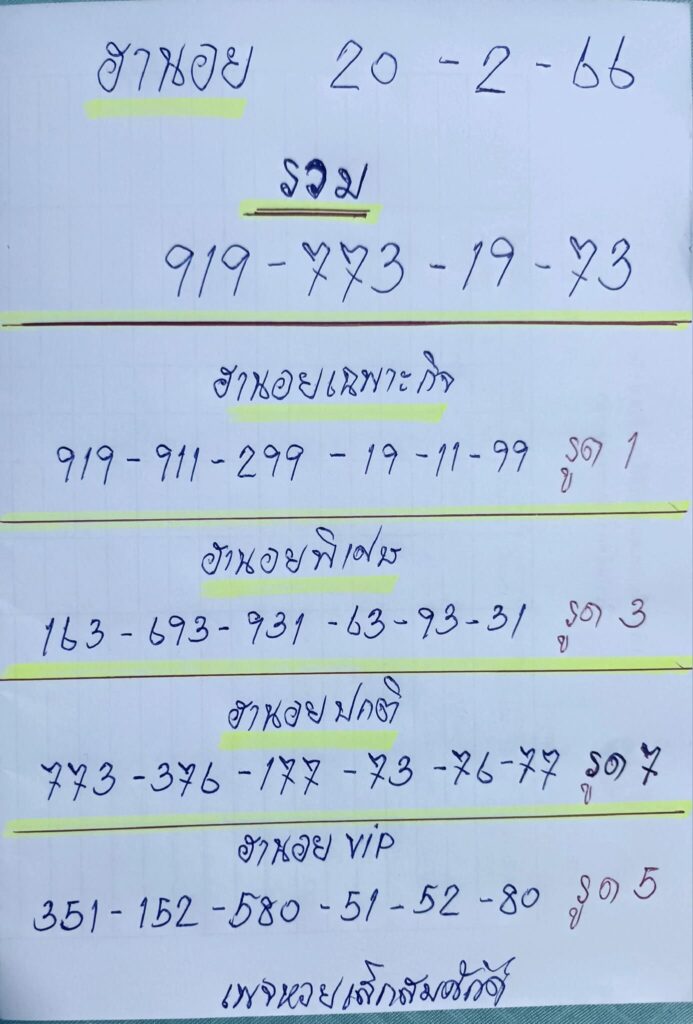 ฮานอย 20-2-66
รวม
919-773-19-73
ฮานอยเฉพาะกิจ
919-911-299-19-11-99 รูด 1
ฮานอยพิเศษ
163-693-931-63-93-31 รูด 3
ฮานอยปกติ
773-376-177-73-76-77 รูด 7
ฮานอย VIP
351-152-580-51-52-80 รูด 5
เพจหวยเล็กสมศักดิ์